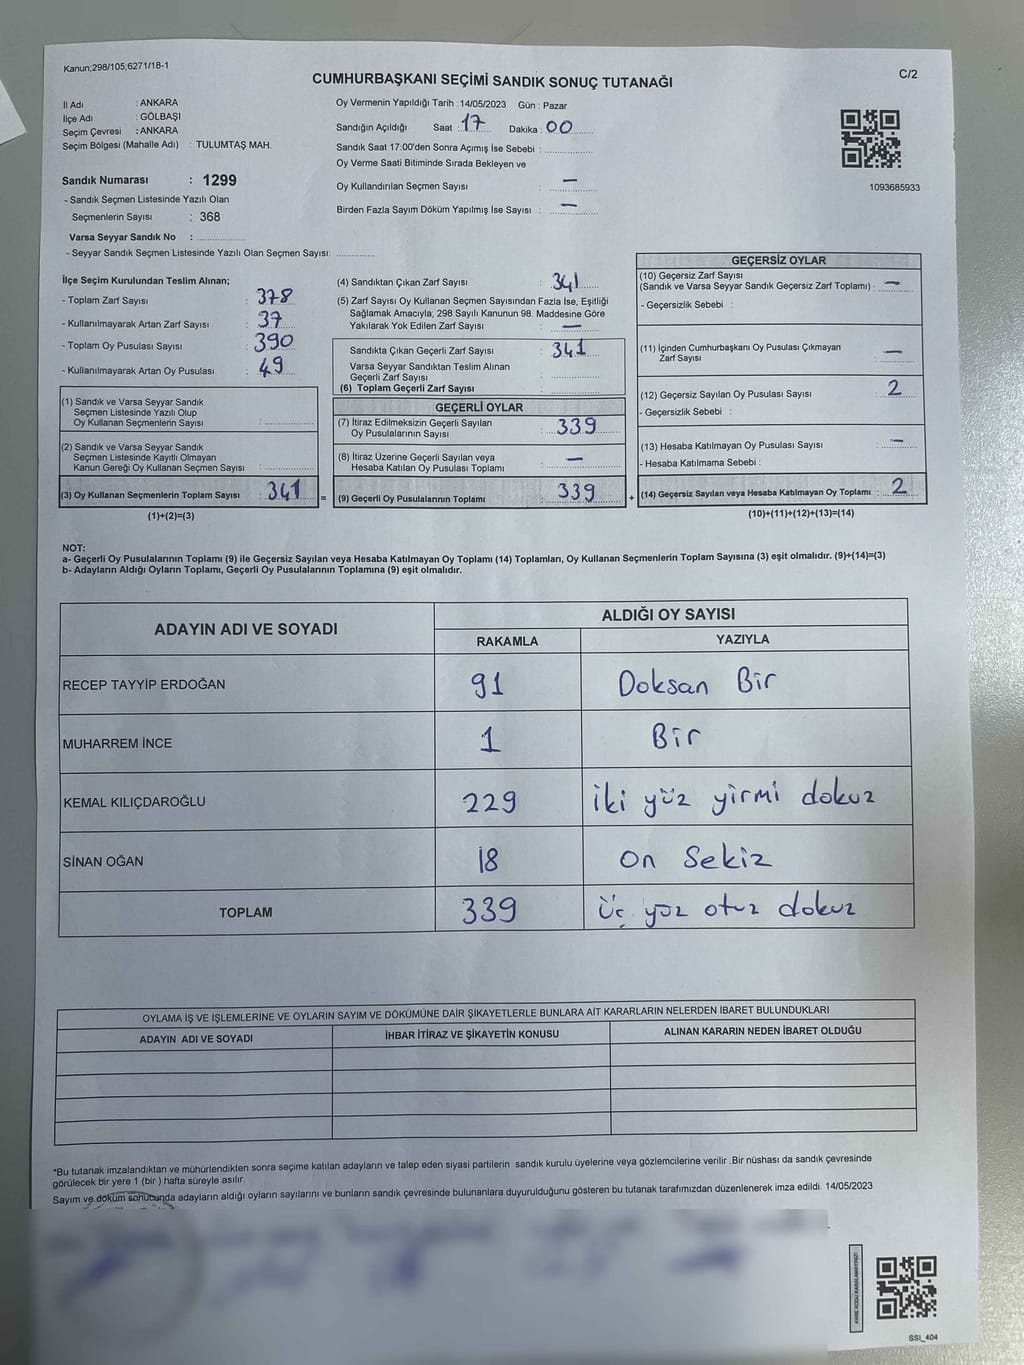 Kanun;298/105;6271/18-1
C/2
CUMHURBAŞKANI SEÇİMİ SANDIK SONUÇ TUTANAĞI
İl Adı : ANKARA
İlçe Adı : GÖLBAŞI
Seçim Çevresi : ANKARA
Seçim Bölgesi (Mahalle Adı) : TULUMTAŞ MAH.
Oy Vermenin Yapıldığı Tarih : 14/05/2023 Gün : Pazar
Sandığın Açıldığı Saat : 17 Dakika : 00
Sandık Saat 17:00'den Sonra Açımış İse Sebebi :
Oy Verme Saati Bitiminde Sırada Bekleyen ve
Oy Kullandırılan Seçmen Sayısı : —
Birden Fazla Sayım Döküm Yapılmış İse Sayısı : —
1093685933
Sandık Numarası : 1299
- Sandık Seçmen Listesinde Yazılı Olan
Seçmenlerin Sayısı : 368
Varsa Seyyar Sandık No :
- Seyyar Sandık Seçmen Listesinde Yazılı Olan Seçmen Sayısı:
İlçe Seçim Kurulundan Teslim Alınan;
- Toplam Zarf Sayısı : 378
- Kullanılmayarak Artan Zarf Sayısı : 37
- Toplam Oy Pusulası Sayısı : 390
- Kullanılmayarak Artan Oy Pusulası : 49
(1) Sandık ve Varsa Seyyar Sandık
Seçmen Listesinde Yazılı Olup
Oy Kullanan Seçmenlerin Sayısı :
(2) Sandık ve Varsa Seyyar Sandık
Seçmen Listesinde Kayıtlı Olmayan
Kanun Gereği Oy Kullanan Seçmen Sayısı :
(3) Oy Kullanan Seçmenlerin Toplam Sayısı : 341 =
(1)+(2)=(3)
(4) Sandıktan Çıkan Zarf Sayısı : 341
(5) Zarf Sayısı Oy Kullanan Seçmen Sayısından Fazla İse, Eşitliği
Sağlamak Amacıyla, 298 Sayılı Kanunun 98. Maddesine Göre
Yakılarak Yok Edilen Zarf Sayısı : —
Sandıkta Çıkan Geçerli Zarf Sayısı : 341
Varsa Seyyar Sandıktan Teslim Alınan
Geçerli Zarf Sayısı :
(6) Toplam Geçerli Zarf Sayısı :
GEÇERLİ OYLAR
(7) İtiraz Edilmeksizin Geçerli Sayılan
Oy Pusulalarının Sayısı : 339
(8) İtiraz Üzerine Geçerli Sayılan veya
Hesaba Katılan Oy Pusulası Toplamı : —
(9) Geçerli Oy Pusulalarının Toplamı : 339 +
GEÇERSİZ OYLAR
(10) Geçersiz Zarf Sayısı
(Sandık ve Varsa Seyyar Sandık Geçersiz Zarf Toplamı) : —
- Geçersizlik Sebebi :
(11) İçinden Cumhurbaşkanı Oy Pusulası Çıkmayan
Zarf Sayısı : —
(12) Geçersiz Sayılan Oy Pusulası Sayısı : 2
- Geçersizlik Sebebi :
(13) Hesaba Katılmayan Oy Pusulası Sayısı : —
- Hesaba Katılmama Sebebi :
(14) Geçersiz Sayılan veya Hesaba Katılmayan Oy Toplamı : 2
(10)+(11)+(12)+(13)=(14)
NOT:
a- Geçerli Oy Pusulalarının Toplamı (9) ile Geçersiz Sayılan veya Hesaba Katılmayan Oy Toplamı (14) Toplamları, Oy Kullanan Seçmenlerin Toplam Sayısına (3) eşit olmalıdır. (9)+(14)=(3)
b- Adayların Aldığı Oyların Toplamı, Geçerli Oy Pusulalarının Toplamına (9) eşit olmalıdır.
ADAYIN ADI VE SOYADI
ALDIĞI OY SAYISI
RAKAMLA YAZIYLA
RECEP TAYYİP ERDOĞAN 91 Doksan Bir
MUHARREM İNCE 1 Bir
KEMAL KILIÇDAROĞLU 229 iki yüz yirmi dokuz
SİNAN OĞAN 18 On Sekiz
TOPLAM 339 Üç yüz otuz dokuz
OYLAMA İŞ VE İŞLEMLERİNE VE OYLARIN SAYIM VE DÖKÜMÜNE DAİR ŞİKAYETLERLE BUNLARA AİT KARARLARIN NELERDEN İBARET BULUNDUKLARI
ADAYIN ADI VE SOYADI İHBAR İTİRAZ VE ŞİKAYETİN KONUSU ALINAN KARARIN NEDEN İBARET OLDUĞU
*Bu tutanak imzalandıktan ve mühürlendikten sonra seçime katılan adayların ve talep eden siyasi partilerin sandık kurulu üyelerine veya gözlemcilerine verilir .Bir nüshası da sandık çevresinde
görülecek bir yere 1 (bir ) hafta süreyle asılır.
Sayım ve döküm sonucunda adayların aldığı oyların sayılarını ve bunların sandık çevresinde bulunanlara duyurulduğunu gösteren bu tutanak tarafımızdan düzenlenerek imza edildi. 14/05/2023
SSI_404